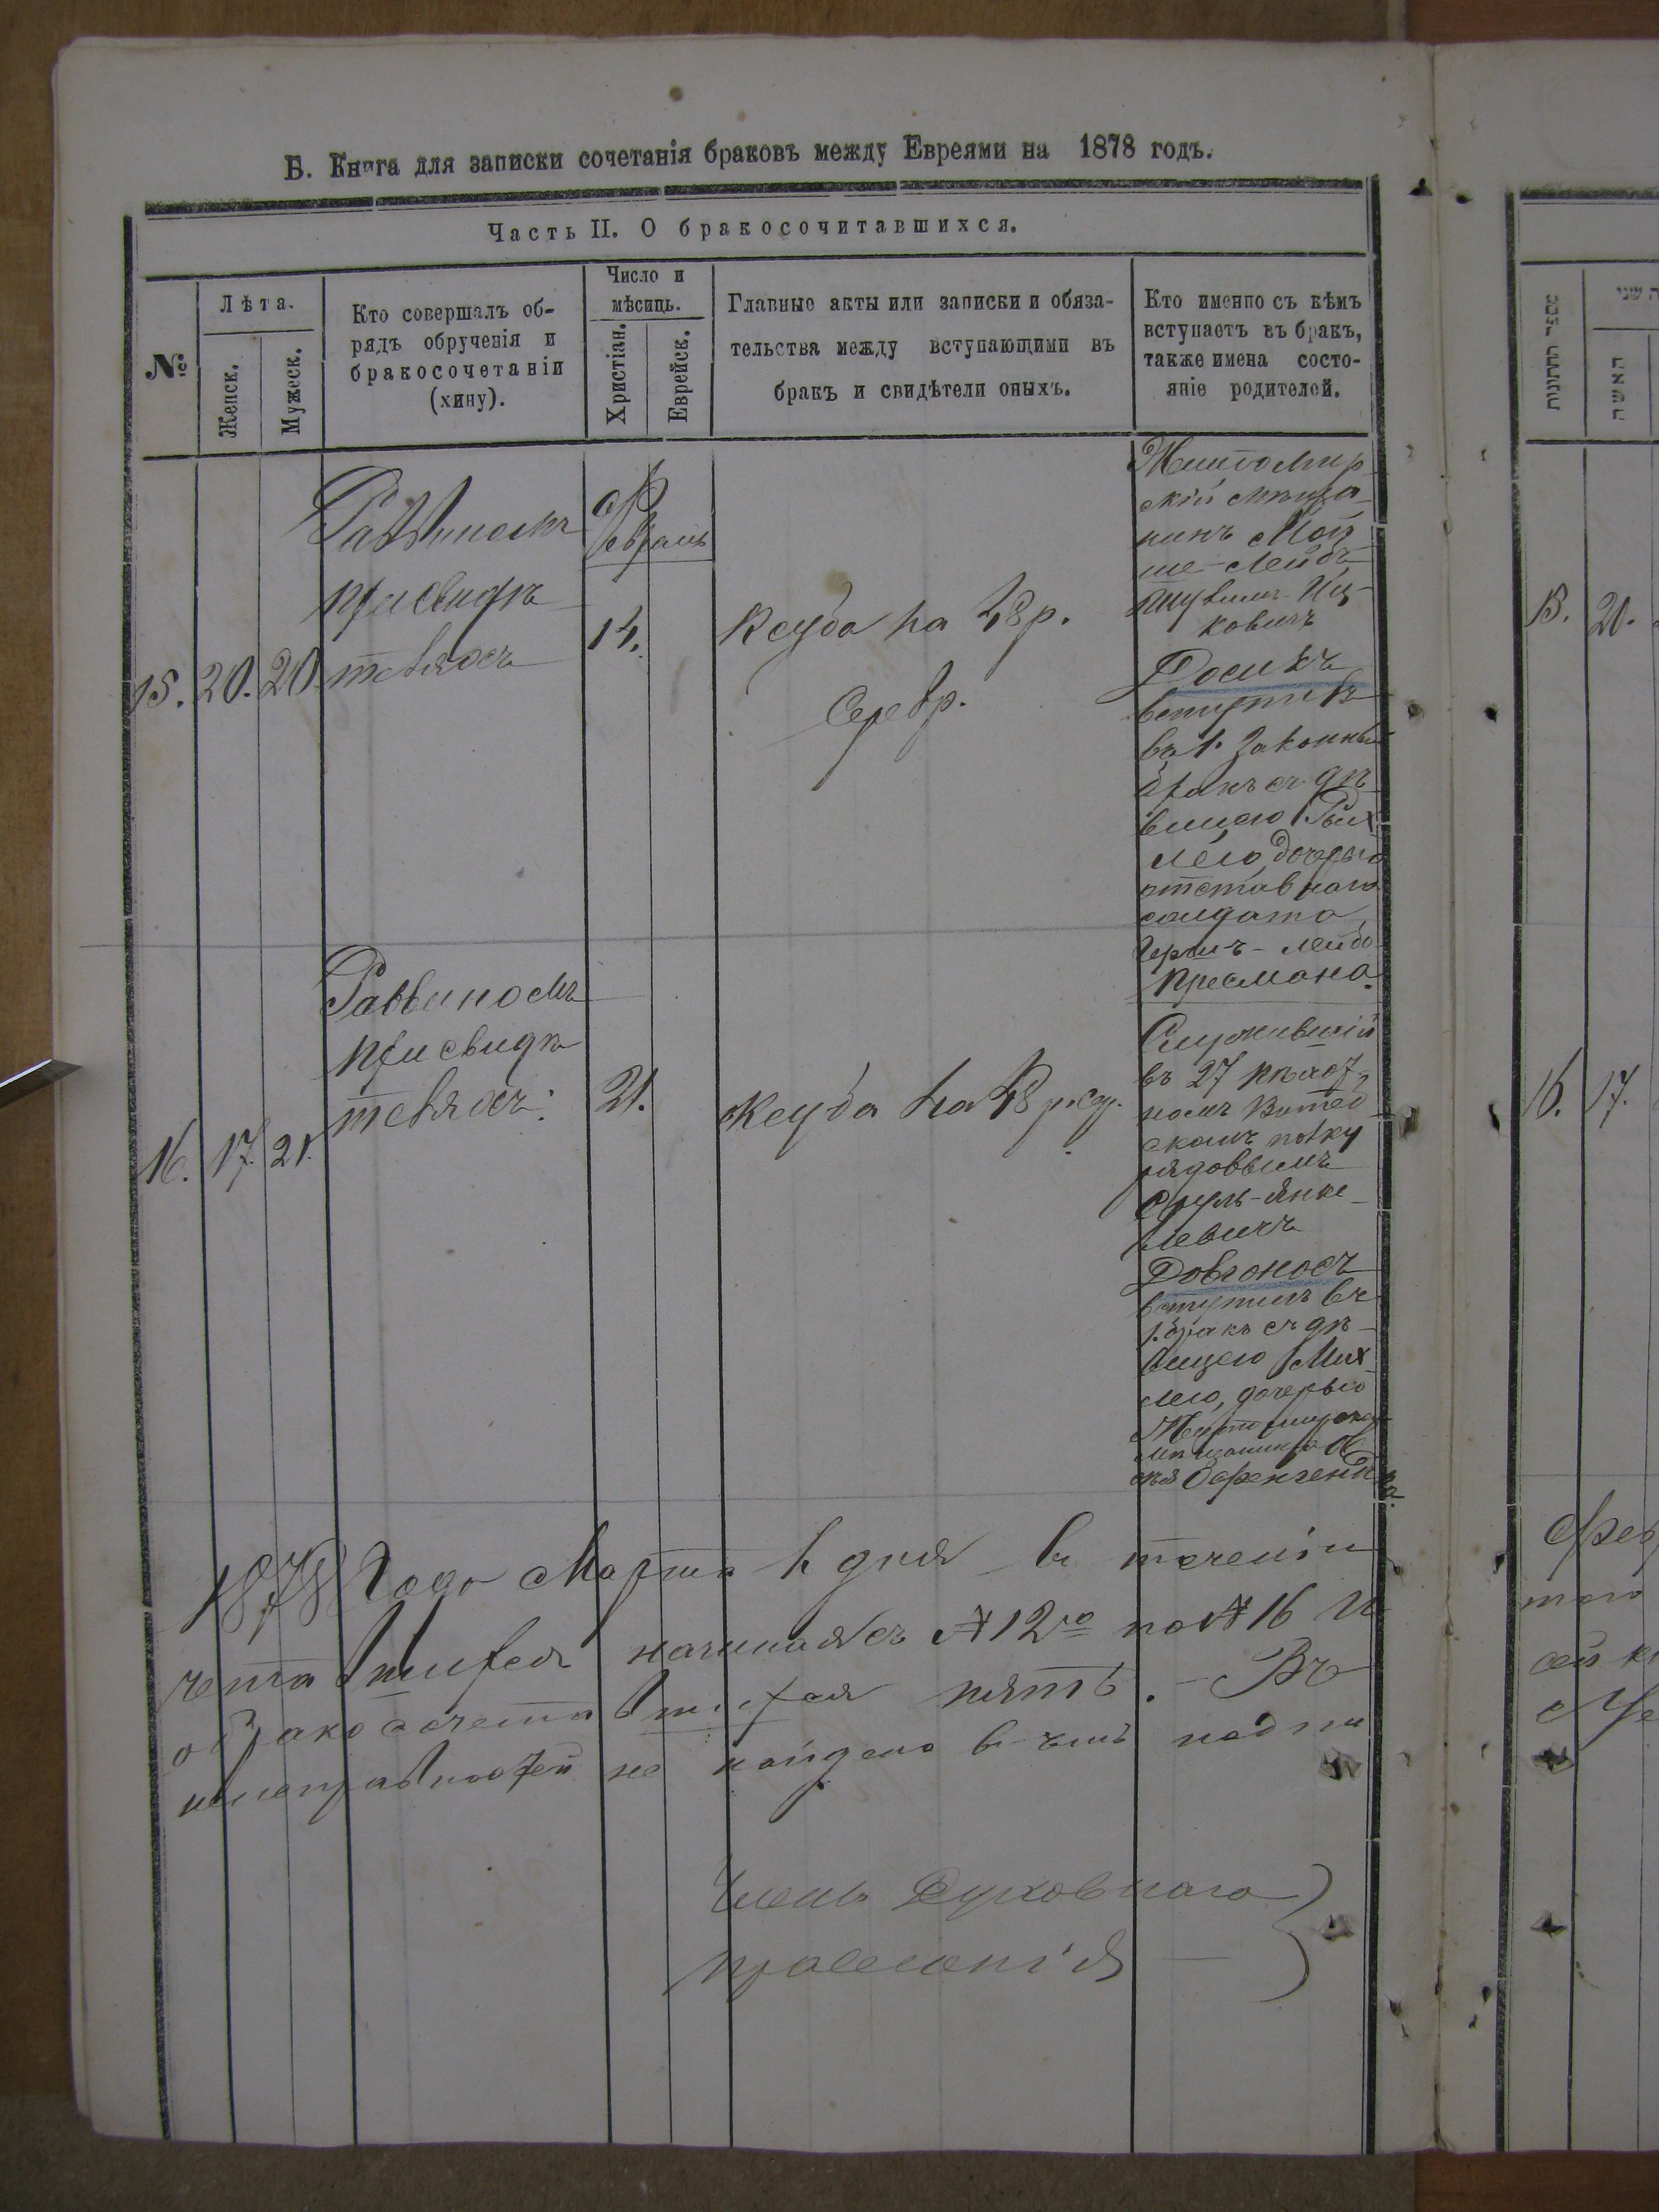 Б. Книга для записки сочетанія браковъ между Евреями на 1878 годъ.
Часть II. О бракосочитавшихся.
№
Лѣта.
Женск.
Мужеск.
Кто совершалъ об-
рядъ обрученія и
бракосочетаніи
(хину).
Число и
мѣсяцъ.
Христіан.
Еврейск.
Главные акты или записки и обяза-
тельства между вступающими въ
бракъ и свидѣтели оныхъ.
Кто именно съ кѣмъ
вступаетъ въ бракъ,
также имена состо-
яніе родителей.
15.
20.
20
Раввиномъ
при свидѣ
теляхъ
Февраль
14.
Ксуба на 48 р.
Серебр.
Житомир
скій мѣща
нинъ Мой
ше-Лейбъ
Иц-
ковичъ
Досикъ
вступилъ
въ 1. законный
бракъ съ дѣ
вицею Рых
лею дочерью
отставнаго
солдата
Герша-Лейба
Пресмана.
16.
17.
21.
Раввиномъ
при свидѣ
теляхъ.
21.
Ксуба на 48 р. сер.
Служившій
въ 27 пѣхот-
номъ Витеб
скомъ полку
рядовымъ
Сруль-Янке-
левичъ
Довгоносъ
вступилъ въ
1. бракъ съ дѣ-
вицею Мих
лею, дочерью
Житомирскаго
мѣщанина
1878 Года Марта 1 дня въ теченіи
начиная съ № 12го по № 16
пять. - Въ
неисправностей не найдено въ чемъ подпи
Членъ Духовнаго
правленія
מספר החתונות
האשה
15.
20.
16.
17.